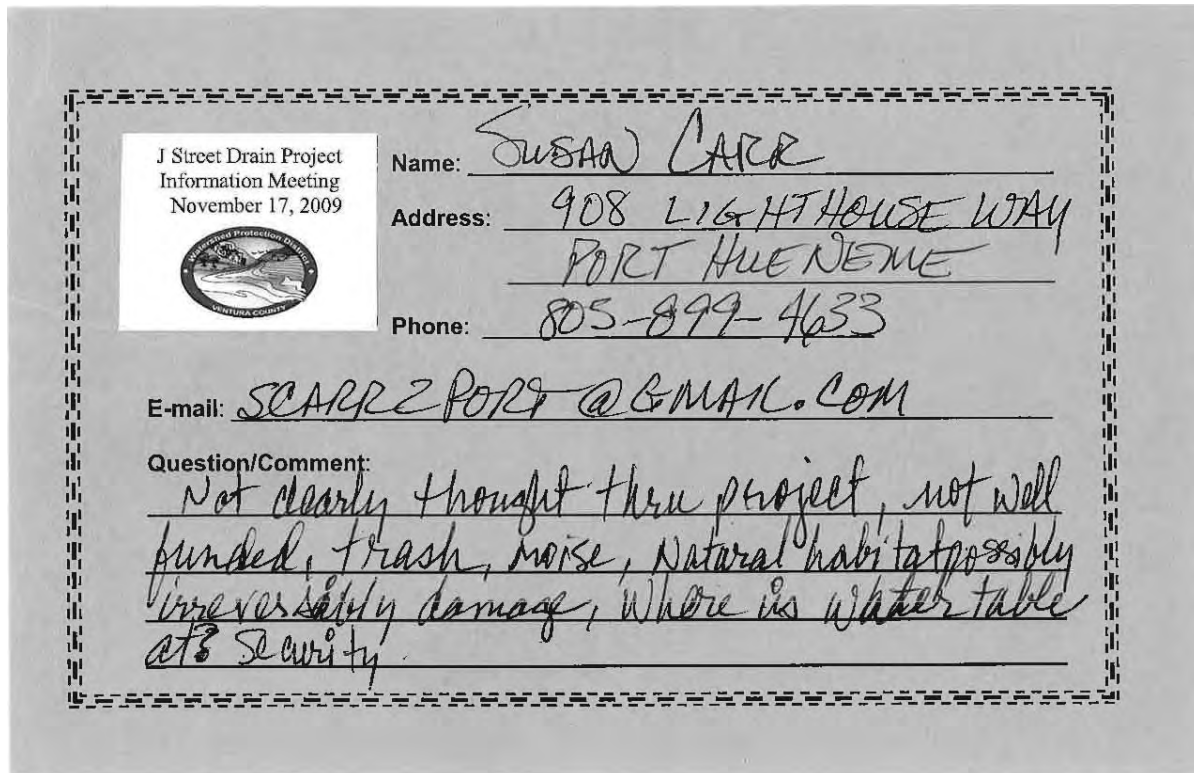 J Street Drain Project
Information Meeting
November 17, 2009
Watershed Protection District
VENTURA COUNTY
Name: SUSAN CARR
Address: 908 LIGHTHOUSE WAY
PORT HUENEME
Phone: 805-899-4633
E-mail: SCARR2PORT@GMAIL.COM
Question/Comment:
Not clearly thought thru project, not well
funded, trash, noise, Natural habitat possibly
irreversibly damage, Where is water table
at? Security.